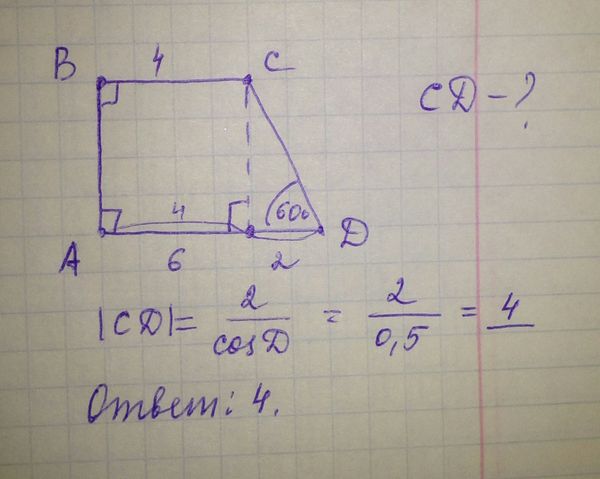 B 4 C
CD - ?
4 60°
A 6 2 D
|CD| = 2/cosD = 2/0,5 = 4
Ответ: 4.